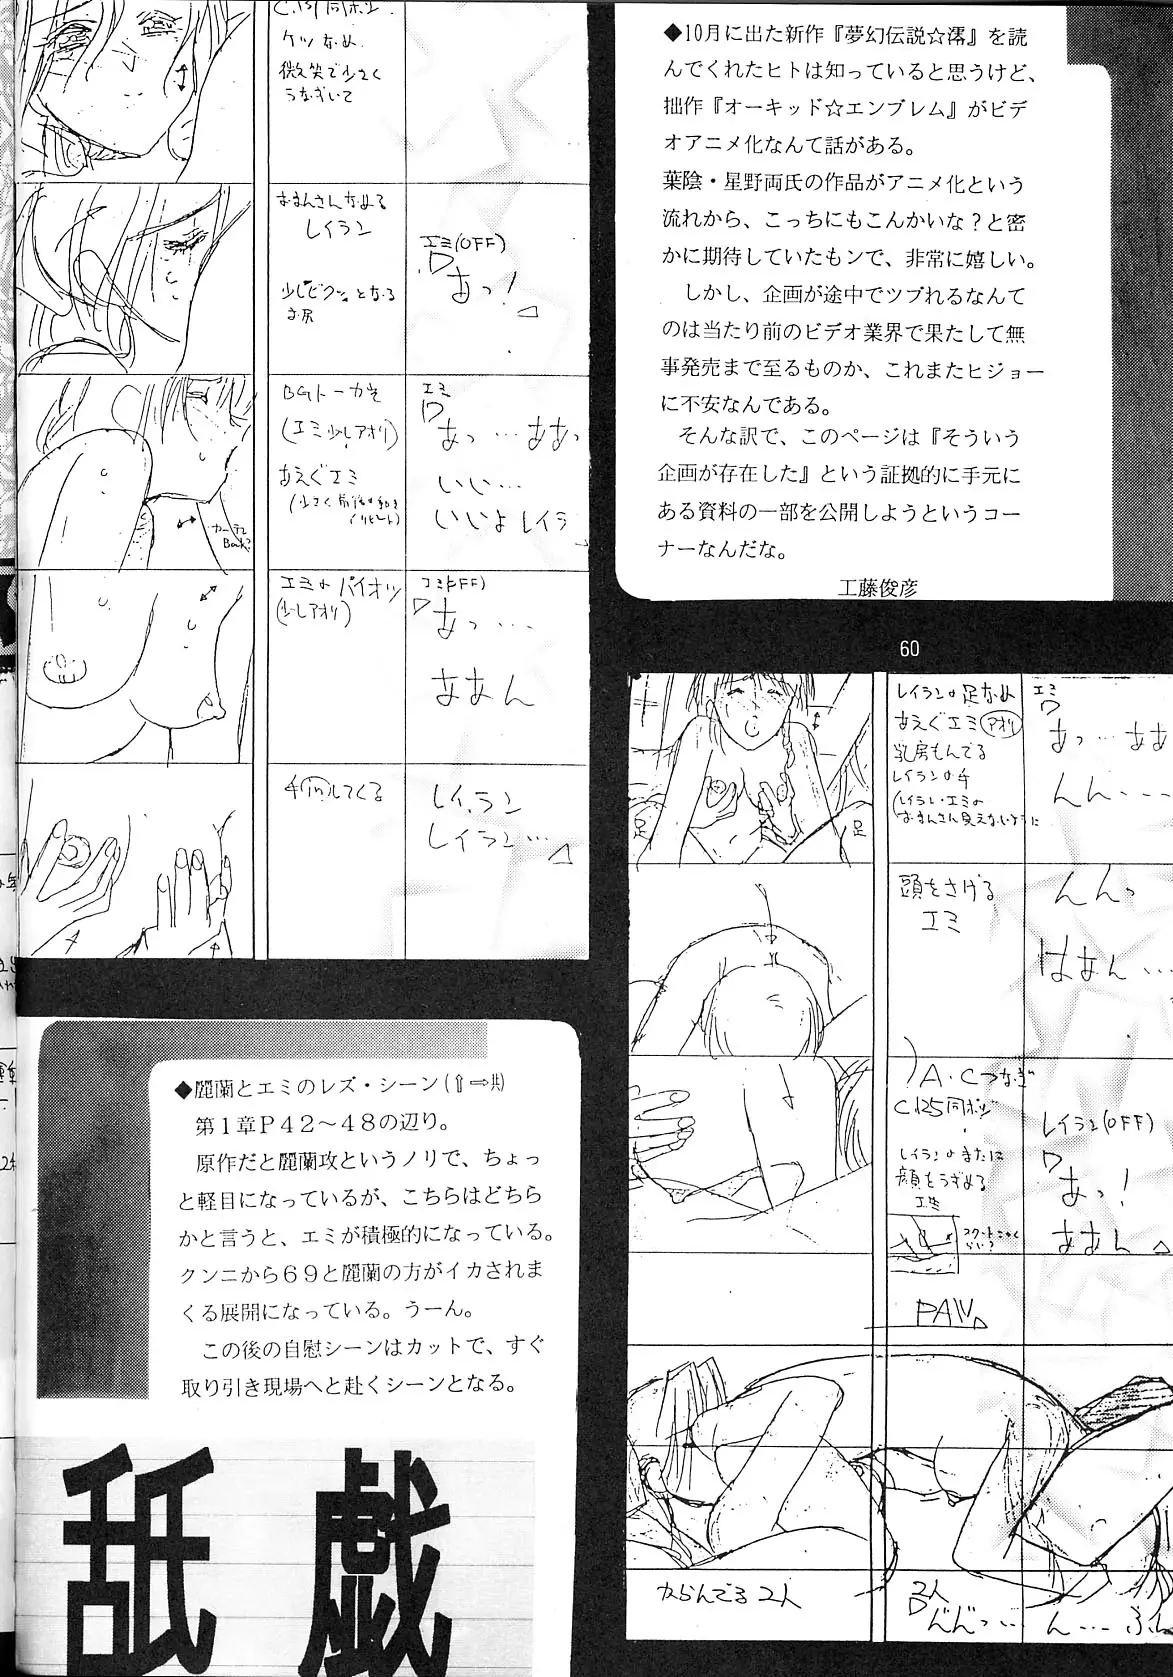 ケツなめ
微笑で少さく
うなずいて
おまんさんなめる
レイラン
少しビクッとなる
お尻
エミ(OFF)
あっ!
BGトーカそ
(エミ少しアオリ)
あえぐエミ
エミ
あっ…ああっ
いい…
いいよレイラ
エミのパイオツ
(少しアオリ)
あっ…
ああん
手inしてくる
レイラン
レイラン…
◆10月に出た新作『夢幻伝説☆澪』を読
んでくれたヒトは知っていると思うけど、
拙作『オーキッド☆エンブレム』がビデ
オアニメ化なんて話がある。
葉陰・星野両氏の作品がアニメ化という
流れから、こっちにもこんかいな?と密
かに期待していたもンで、非常に嬉しい。
しかし、企画が途中でツブれるなんて
のは当たり前のビデオ業界で果たして無
事発売まで至るものか、これまたヒジョー
に不安なんである。
そんな訳で、このページは『そういう
企画が存在した』という証拠的に手元に
ある資料の一部を公開しようというコー
ナーなんだな。
工藤俊彦
60
レイランの足なめ
あえぐエミ(アオリ)
乳房もんでる
レイランの手
(レイラン・エミの
おまんさん見えないように
エミ
あっ…ああ
んん…
足
足
頭をさげる
エミ
んんっ
はあん…
A・Cつなぎ
C.125同ポジ
レイランのまたに
顔をうずめる
エミ
レイラン(OFF)
あっ!
ああん
PAN
からんでる2人
2人
んんっ…
ん…ふん
◆麗蘭とエミのレズ・シーン(⇧⇨共)
第1章P42〜48の辺り。
原作だと麗蘭攻というノリで、ちょっ
と軽目になっているが、こちらはどちら
かと言うと、エミが積極的になっている。
クンニから69と麗蘭の方がイカされま
くる展開になっている。うーん。
この後の自慰シーンはカットで、すぐ
取り引き現場へと赴くシーンとなる。
舐戯